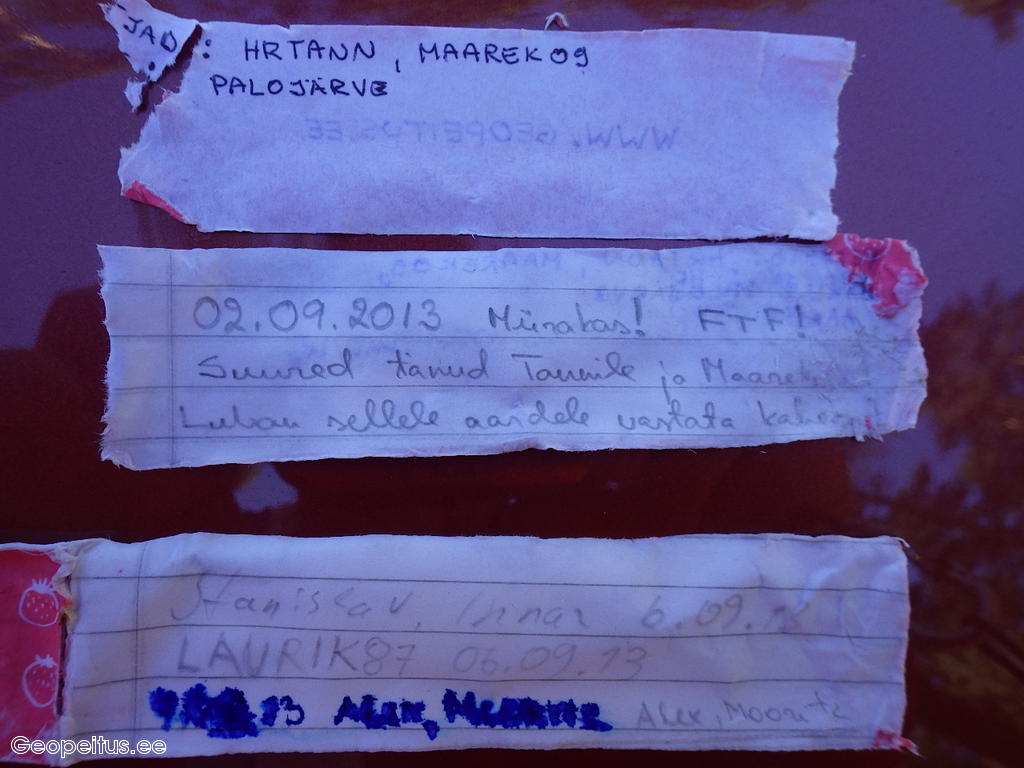 JAD : HRTANN, MAAREK09
PALOJÄRVE
WWW.GEOPEITUS.EE
02.09.2013 Mürakas! FTF!
Suured tänud Tannile ja
Luban sellele aardele vastata
Stanislav, Innar 6.09.13
LAURIK87 06.09.13
13 Alex, Alex, Moorits
Geopeitus.ee